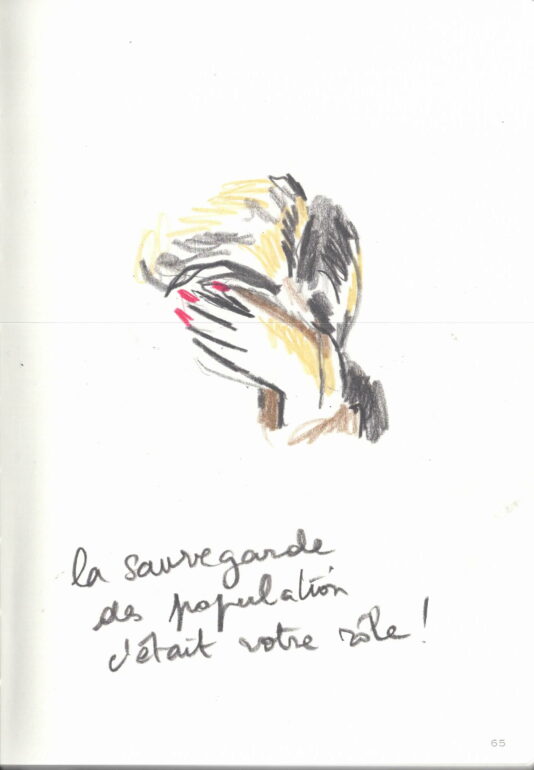 la sauvegarde
des population
c'était votre rôle !
65